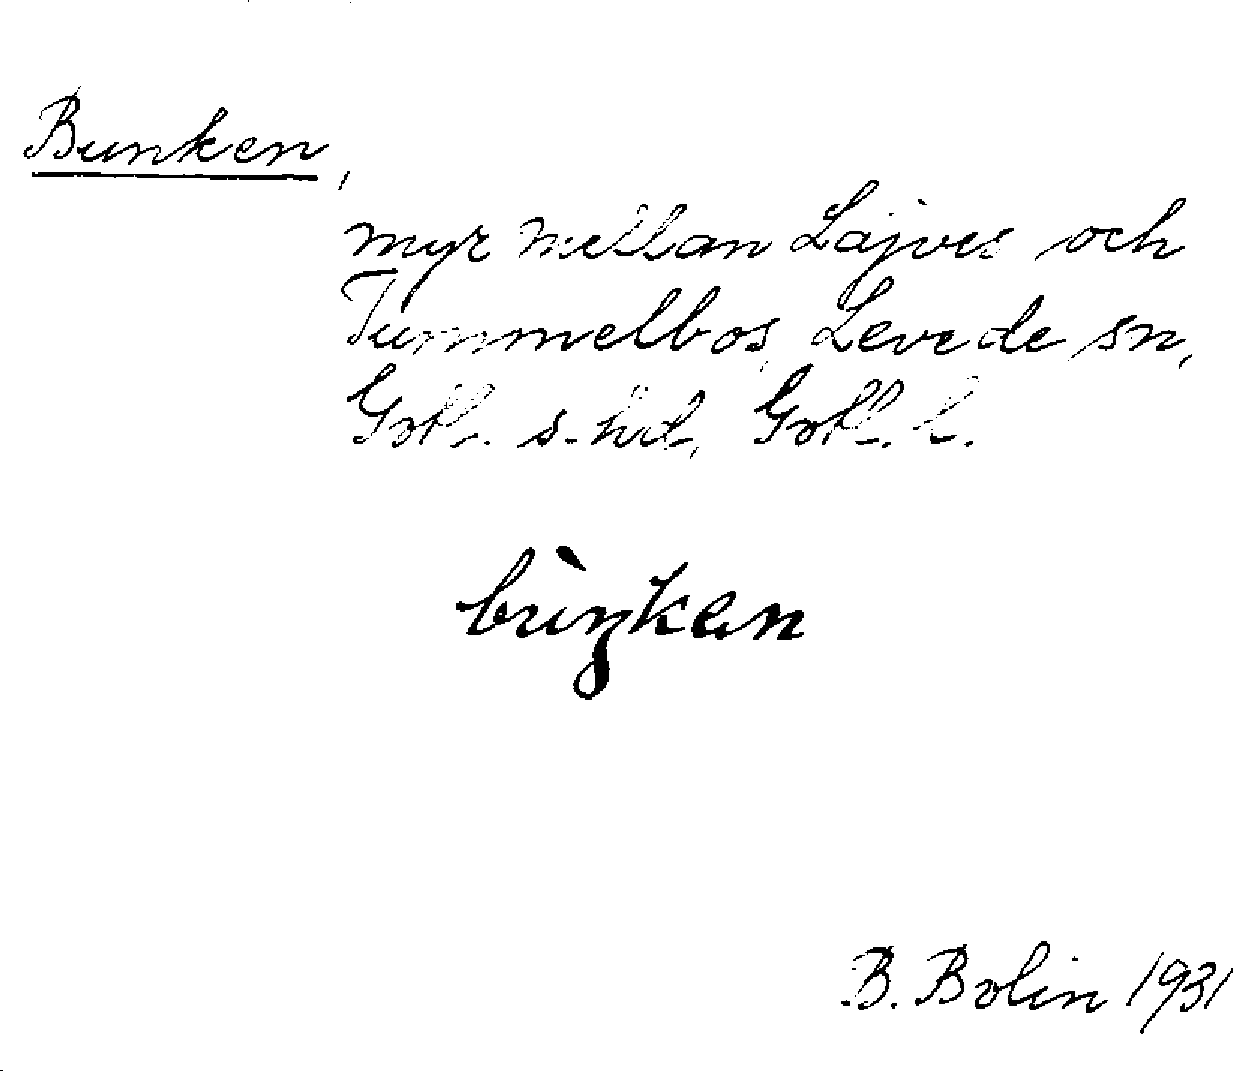 Bunken,
myr mellan Lajves och
Tummelbos, Levede sn,
Gotl. s. hd, Gotl. l.
bùŋkan
B. Bolin 1931